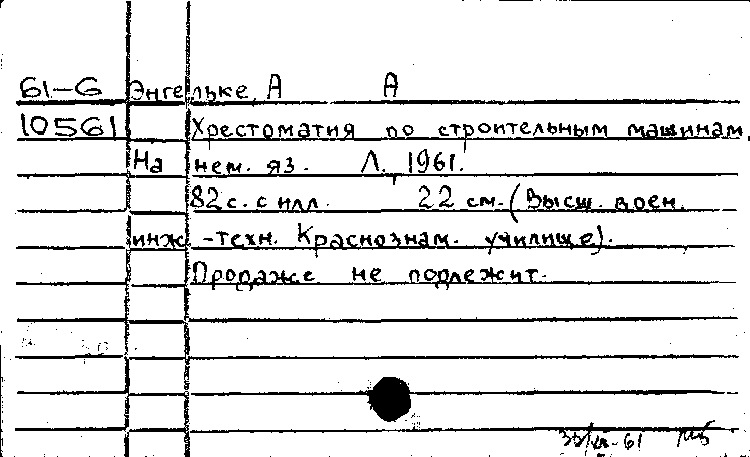 61-6 Энгельке, А А
10561 Хрестоматия по строительным машинам.
На нем. яз. Л., 1961.
82 с. с илл. 22 см. (Высш. воен.
инж.-техн. Краснознам. училище).
Продаже не подлежит.